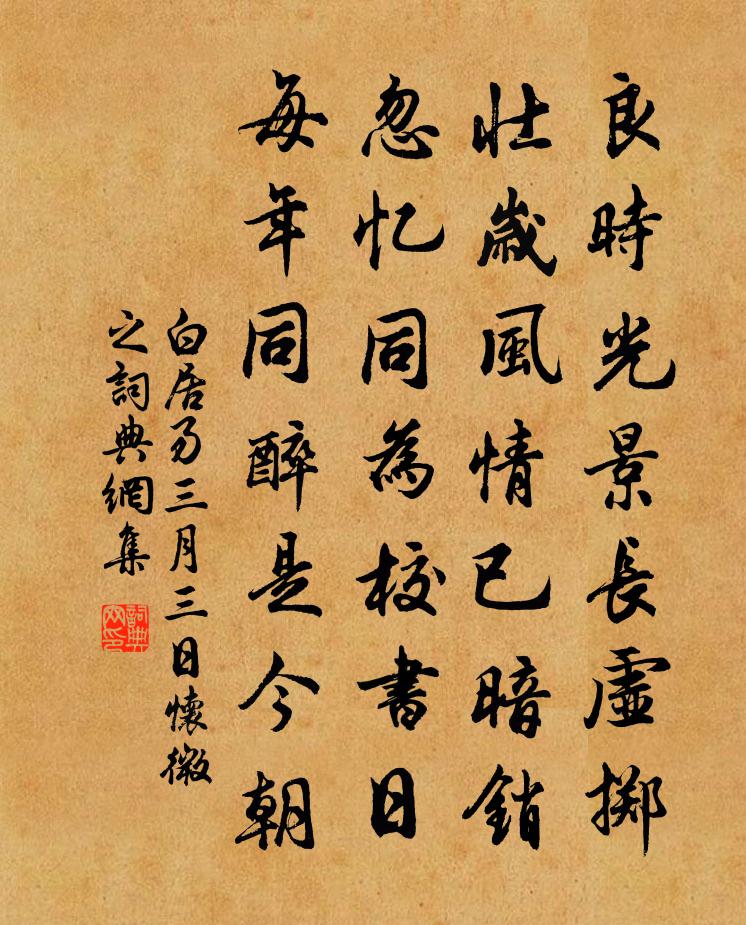 良時光景長虛擲
壯歲風情已暗銷
忽忆同為校書日
每年同醉是今朝
白居易三月三日懷微
之詞典網集
詞典网印